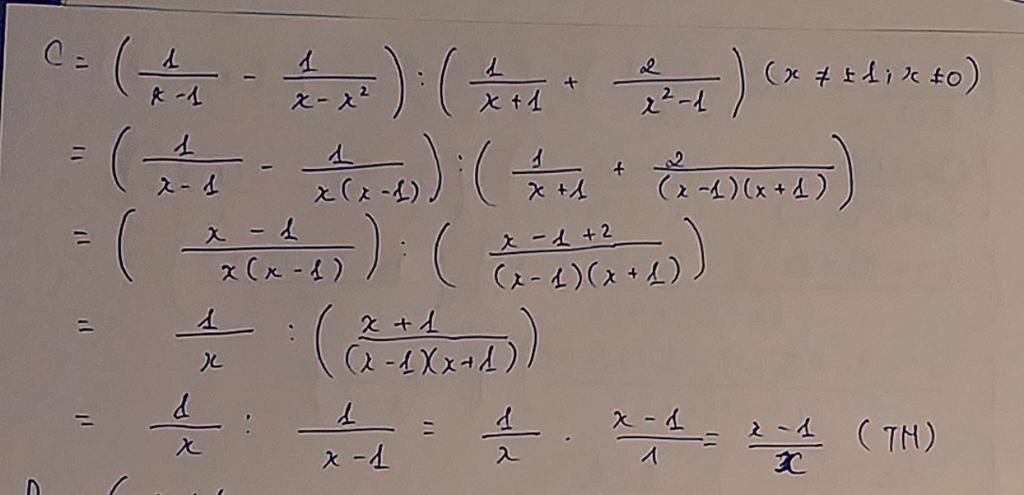 C = ( 1/(x-1) - 1/(x-x²) ) : ( 1/(x+1) + 2/(x²-1) ) (x ≠ ±1; x ≠ 0)
= ( 1/(x-1) - 1/(x(x-1)) ) : ( 1/(x+1) + 2/((x-1)(x+1)) )
= ( (x-1)/(x(x-1)) ) : ( (x-1+2)/((x-1)(x+1)) )
= 1/x : ( (x+1)/((x-1)(x+1)) )
= 1/x : 1/(x-1) = 1/x . (x-1)/1 = (x-1)/x (TM)